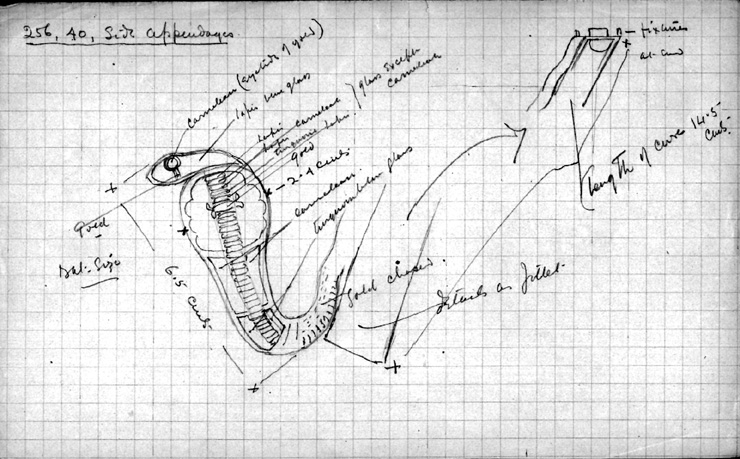 256, 40, Side appendages.
carnelian (eyelids of gold)
lapis blue glass
lapis
lapis carnelian
turquoise lapis.
glass except carnelian
gold
2.4 cms.
carnelian.
turquoise blue glass
fixtures
at end
length of curve 14.5 cms.
gold
Nat. Size
6.5 cms.
gold chased.
Details as fillet.